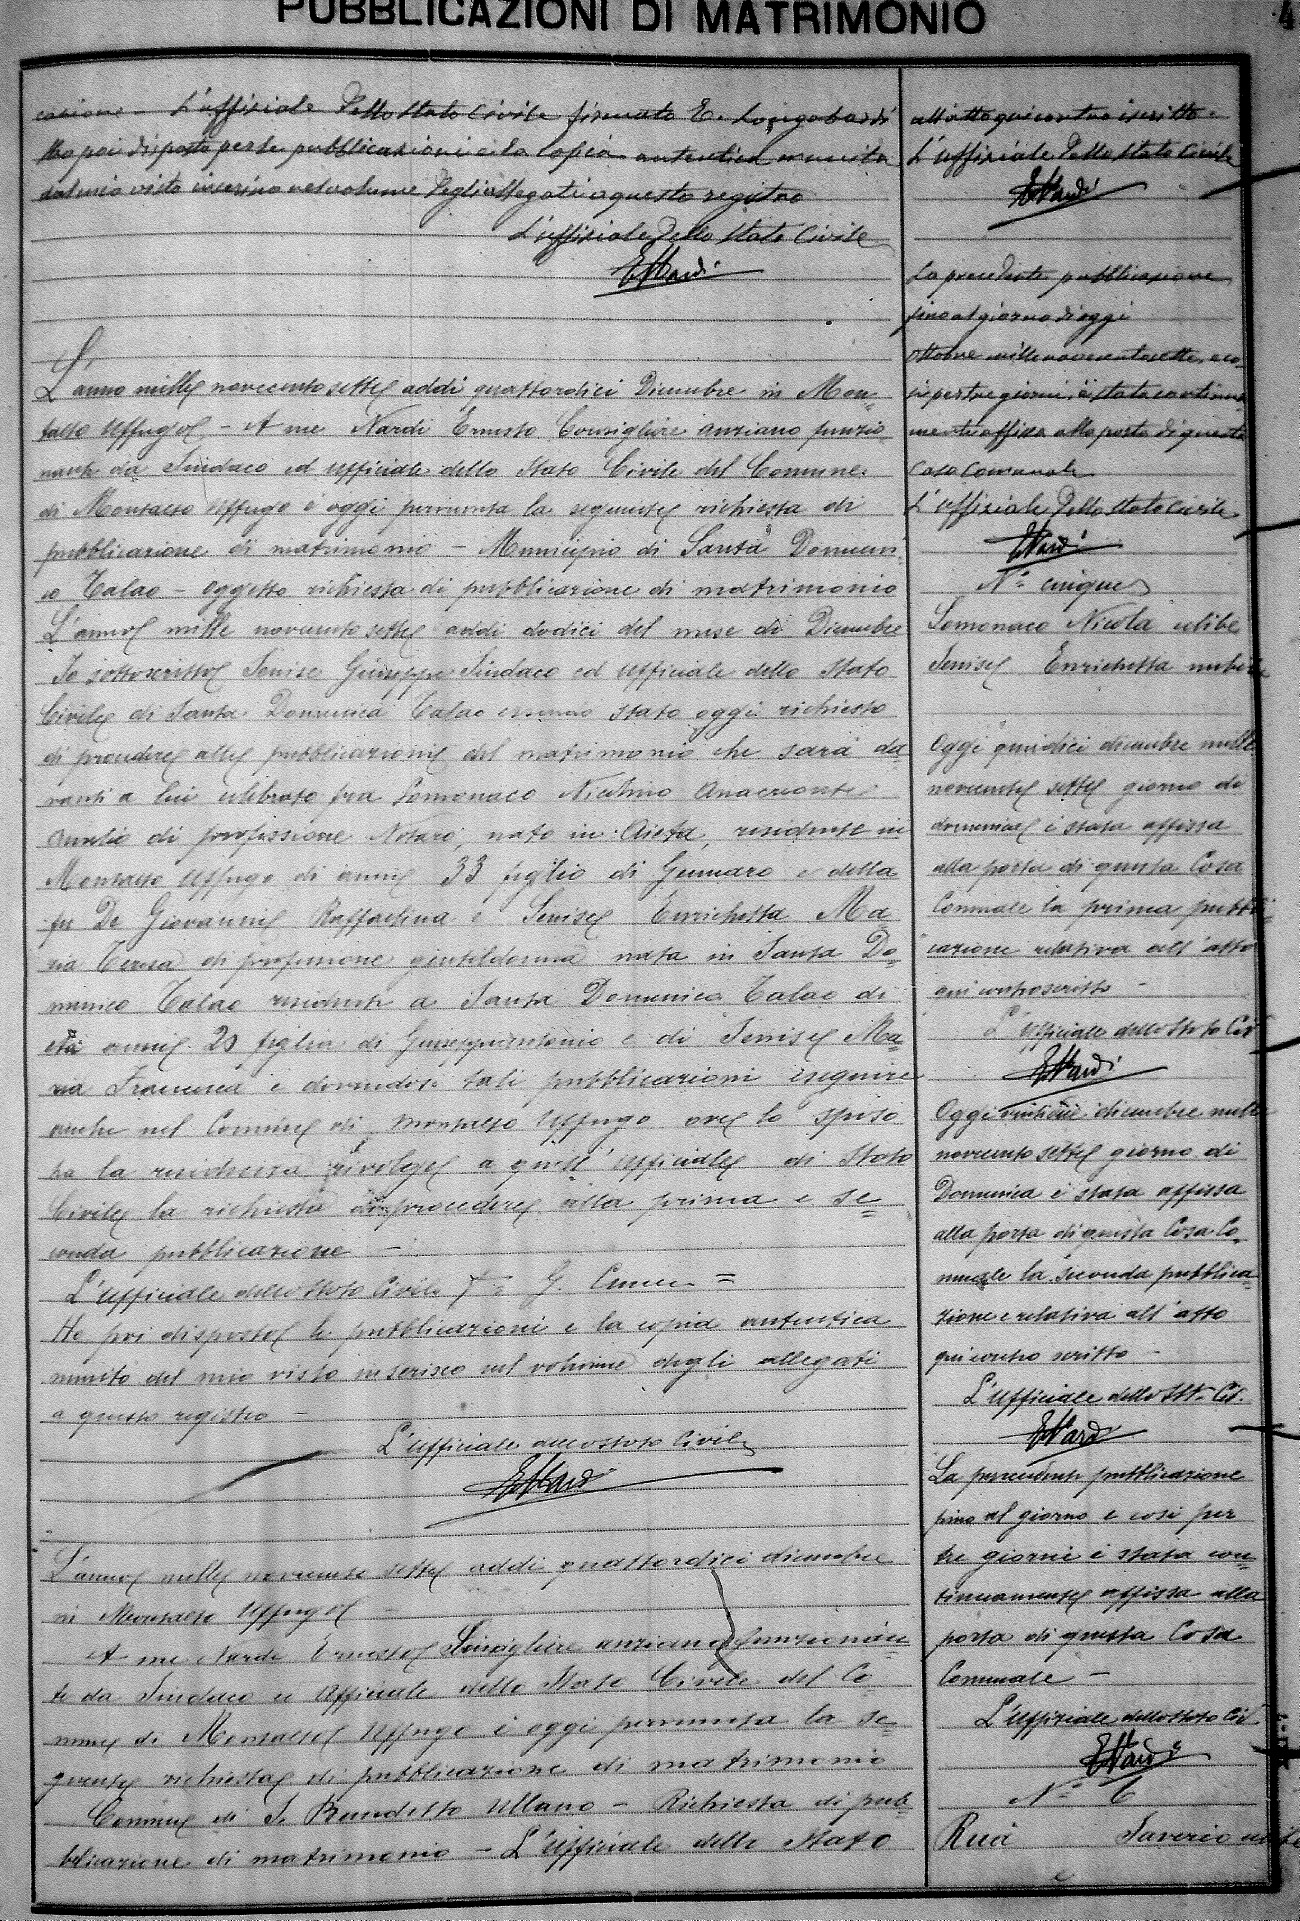 PUBBLICAZIONI DI MATRIMONIO
4
cazione - L'uffiziale dello Stato Civile firmato E. Longobardi
Ho poi disposto per le pubblicazioni e la copia autentica munita
dal mio visto inserisco nel volume degli allegati a questo registro
L'uffiziale dello Stato Civile
ENardi
L'anno mille novecento sette addi quattordici Dicembre in Mon=
talto Uffugo - A me Nardi Ernesto Consigliere anziano funzio=
nante da Sindaco ed ufficiale dello Stato Civile del Comune
di Montalto Uffugo è oggi pervenuta la seguente richiesta di
pubblicazione di matrimonio - Municipio di Santa Domeni
ca Talao - oggetto richiesta di pubblicazione di matrimonio
L'anno mille novecento sette addi dodici del mese di Dicembre
Io sottoscritto Senise Giuseppe Sindaco ed ufficiale dello Stato
Civile di Santa Domenica Talao essendo stato oggi richiesto
di procedere alle pubblicazioni del matrimonio che sarà da=
vanti a lui celebrato fra Lomonaco Nicolino Anacreonte
Aurelio di professione Notaro, nato in Aieta, residente in
Montalto Uffugo di anni 33 figlio di Gennaro e della
fu De Giovanni Raffaelina e Senise Enrichetta Ma
ria Teresa di professione gentildonna nata in Santa Do=
menica Talao residente a Santa Domenica Talao di
età anni 20 figlia di Giuseppantonio e di Senise Ma=
ria Francesca e dovendosi tali pubblicazioni eseguire
anche nel Comune di Montalto Uffugo ove lo sposo
ha la residenza rivolge a quest'ufficiale di Stato
Civile la richiesta di procedere alla prima e se=
conda pubblicazione -
L'ufficiale dello Stato Civile G.
Ho poi disposto le pubblicazioni e la copia autentica
munito del mio visto inserisco nel volume degli allegati
a questo registro -
L'ufficiale dello Stato Civile
ENardi
L'anno mille novecento sette addi quattordici dicembre
in Montalto Uffugo
A me Nardi Ernesto Consigliere anziano funzionan
te da Sindaco e Ufficiale dello Stato Civile del Co=
mune di Montalto Uffugo è oggi pervenuta la se=
guente richiesta di pubblicazione di matrimonio
Comune di S. Benedetto Ullano - Richiesta di pub=
blicazione di matrimonio - L'ufficiale dello Stato
all'atto qui contro iscritto
L'uffiziale dello Stato Civile
ENardi
La precedente pubblicazione
fino al giorno di oggi
ottobre mille novecentosette, e co=
sì per tre giorni, è stata continua
mente affissa alla porta di questa
Casa Comunale
L'uffiziale dello Stato Civile
ENardi
N° cinque
Lomonaco Nicola celibe
Senise Enrichetta nubile
Oggi quindici dicembre mille
novecento sette giorno di
domenica è stata affissa
alla porta di questa Casa
Comunale la prima pubbli=
cazione relativa all'atto
qui controscritto -
L'ufficiale dello Stato Civ.
ENardi
Oggi dicembre mille
novecento sette giorno di
Domenica è stata affissa
alla porta di questa Casa Co=
munale la seconda pubblica=
zione relativa all'atto
qui contro scritto -
L'ufficiale dello Stt. Civ.
ENardi
La precedente pubblicazione
fino al giorno e così per
tre giorni è stata con=
tinuamente affissa alla
porta di questa Casa
Comunale -
L'uffiziale dello Stato Civ.
ENardi
N° 6
Ruà Saverio
e